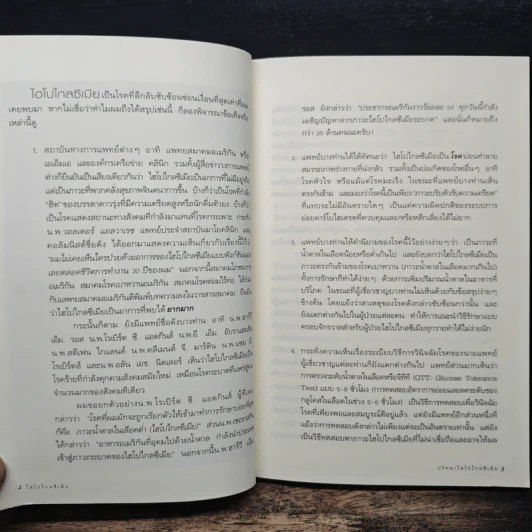 ไฮโปไกลซีเมีย เป็นโรคที่ลึกลับซับซ้อนซ่อนเงื่อนที่สุดเท่าที่ผม
เคยพบมา หากไม่เชื่อว่าทำไมผมถึงได้สรุปเช่นนี้ ก็ลองพิจารณาข้อเท็จจริง
เหล่านี้ดู
1. สถาบันทางการแพทย์ต่างๆ อาทิ แพทยสมาคมอเมริกัน หรือ
เอเอ็มเอ และองค์กรเครือข่าย คลินิก รวมทั้งผู้สื่อข่าววงการแพทย์
ต่างก็ยืนยันเป็นเสียงเดียวกันว่า ไฮโปไกลซีเมียเป็นอาการที่ไม่มีอยู่จริง
แต่เป็นภาวะที่พวกคลั่งสุขภาพจินตนาการขึ้น บ้างก็ว่าเป็นโรคที่กำลัง
"ฮิต" ของบรรดาดาวรุ่งที่มีความเครียดสูงหรือนักดื่มตัวยง บ้างก็ว่า
เป็นโรคแสดงสถานะทางสังคมที่กำลังมาแทนที่โรคกระเพาะ เช่นที่
น.พ.วอลเตอร์ แอลวาเรซ แพทย์ประจำสถาบันมาโยคลินิก และ
คอลัมนิสต์ชื่อดัง ได้ออกมาแสดงความเห็นเกี่ยวกับเรื่องนี้ไว้ว่า
"ผมไม่เคยเห็นใครป่วยด้วยอาการของไฮโปไกลซีเมียแบบฟังก์ชันนอล
เลยตลอดชีวิตการทำงาน 30 ปีของผม" นอกจากนี้สมาคมโภชนาการ
อเมริกัน สมาคมโรคเบาหวานอเมริกัน สมาคมโรคต่อมไร้ท่อ ได้ร่วม
กับแพทยสมาคมอเมริกันตีพิมพ์บทความลงในวารสารสมาคม ยืนยัน
ว่าไฮโปไกลซีเมียเป็นอาการที่พบได้ ยากมาก
กระนั้นก็ตาม ยังมีแพทย์ชื่อดังบางท่าน อาทิ น.พ.ฮารี่
เอ็ม. รอส น.พ.โรเบิร์ต ซี. แอตกินส์ น.พ.อี. เอ็ม. อับราฮัมสัน
น.พ.สตีเฟน ไกแลนด์ น.พ.คลีเมนต์ จี. มาร์ติน น.พ.แซม อี.
โรเบิร์ตส์ และน.พ.อลัน เอช. นิตเลอร์ เห็นว่าไฮโปไกลซีเมียเป็น
โรคร้ายที่กำลังคุกคามสังคมสมัยใหม่ เหมือนโรคระบาดที่แพร่สู่คน
จำนวนมากของสังคมทีเดียว
ผมขอยกตัวอย่างน.พ.โรเบิร์ต ซี. แอตกินส์ ผู้ซึ่งเคย
กล่าวว่า "โรคที่ผมมักจะถูกเรียกตัวให้เข้ามาทำการรักษาบ่อยที่สุด
ก็คือ ภาวะน้ำตาลในเลือดต่ำ (ไฮโปไกลซีเมีย)" ส่วนน.พ.
ได้กล่าวว่า "อาหารอเมริกันที่อุดมไปด้วยน้ำตาล กำลังนำประเทศ
เข้าสู่ภาวะระบาดของไฮโปไกลซีเมีย" นอกจากนี้น.พ.ฮารี่ เอ็ม.
ไฮโปไกลซีเมีย
รอส ยังกล่าวว่า "ประชากรอเมริกันราวร้อยละ 10 ทุกวันนี้กำลัง
เผชิญปัญหาจากภาวะไฮโปไกลซีเมียระบาด" และนั่นก็หมายถึง
กว่า 20 ล้านคนนะครับ!
2. แพทย์บางท่านได้ให้ทัศนะว่า ไฮโปไกลซีเมียเป็น โรค บ่อนทำลาย
สมรรถภาพร่างกายที่น่ากลัว รวมทั้งเป็นบ่อเกิดของโรคอื่นๆ อาทิ
โรคหัวใจ หรือแม้แต่โรคมะเร็ง ในขณะที่แพทย์บางท่านเห็น
ตรงกันข้าม และมองว่าโรคนี้เป็นเพียง "ภาวะปรับตัวรับความเครียด"
ที่แทบจะไม่มีอันตรายใดๆ แต่เกิดความผิดปกติของระบบการ
ย่อยคาร์โบไฮเดรตที่ควบคุมและ/หรือหลีกเลี่ยงได้ไม่ยาก
3. แพทย์บางท่านให้คำนิยามของโรคนี้ไว้อย่างง่ายๆ ว่า เป็นภาวะที่
น้ำตาลในเลือดน้อยหรือต่ำเกินไป และยังบอกไว้ด้วยว่าไฮโปไกลซีเมียเป็น
ภาวะตรงกันข้ามของโรคเบาหวาน (ภาวะน้ำตาลในเลือดมากเกินไป)
ทั้งการรักษาก็ทำได้ง่ายๆ ด้วยการเพิ่มปริมาณน้ำตาลในอาหารที่
บริโภค ในขณะที่ผู้เชี่ยวชาญบางท่านไม่เห็นด้วยกับข้อสรุปง่ายๆ
ข้างต้น โดยแย้งว่าสาเหตุของโรคดังกล่าวซับซ้อนกว่านั้น และ
ยังแตกต่างกันไปในผู้ป่วยแต่ละคน ทำให้การแนะนำวิธีรักษาแบบ
ครอบจักรวาลสำหรับผู้ป่วยไฮโปไกลซีเมียทุกรายทำได้ไม่ง่ายนัก
4. กระทั่งความเห็นเรื่องระเบียบวิธีการวินิจฉัยโรคของนายแพทย์
ผู้เชี่ยวชาญแต่ละท่านก็ยังแตกต่างกันไป แพทย์ส่วนมากเห็นว่า
การตรวจระดับน้ำตาลในเลือดหรือจีทีที (GTT: Glucose Tolerance
Test) แบบ 5-6 ชั่วโมง (เป็นการทดสอบอัตราการย่อยและลดระดับของ
กลูโคสในเลือดในช่วง 5-6 ชั่วโมง) เป็นวิธีทดสอบเพื่อวินิจฉัย
โรคที่เพียงพอและสมบูรณ์ดีอยู่แล้ว แต่ยังมีแพทย์อีกส่วนหนึ่งที่
แย้งว่าการทดสอบดังกล่าวไม่เพียงแต่จะเป็นอันตรายเท่านั้น แต่ยัง
เป็นวิธีทดสอบหาภาวะไฮโปไกลซีเมียที่ไม่น่าเชื่อถือและอาจให้ผล
ปริศนาไฮโปไกลซีเมีย